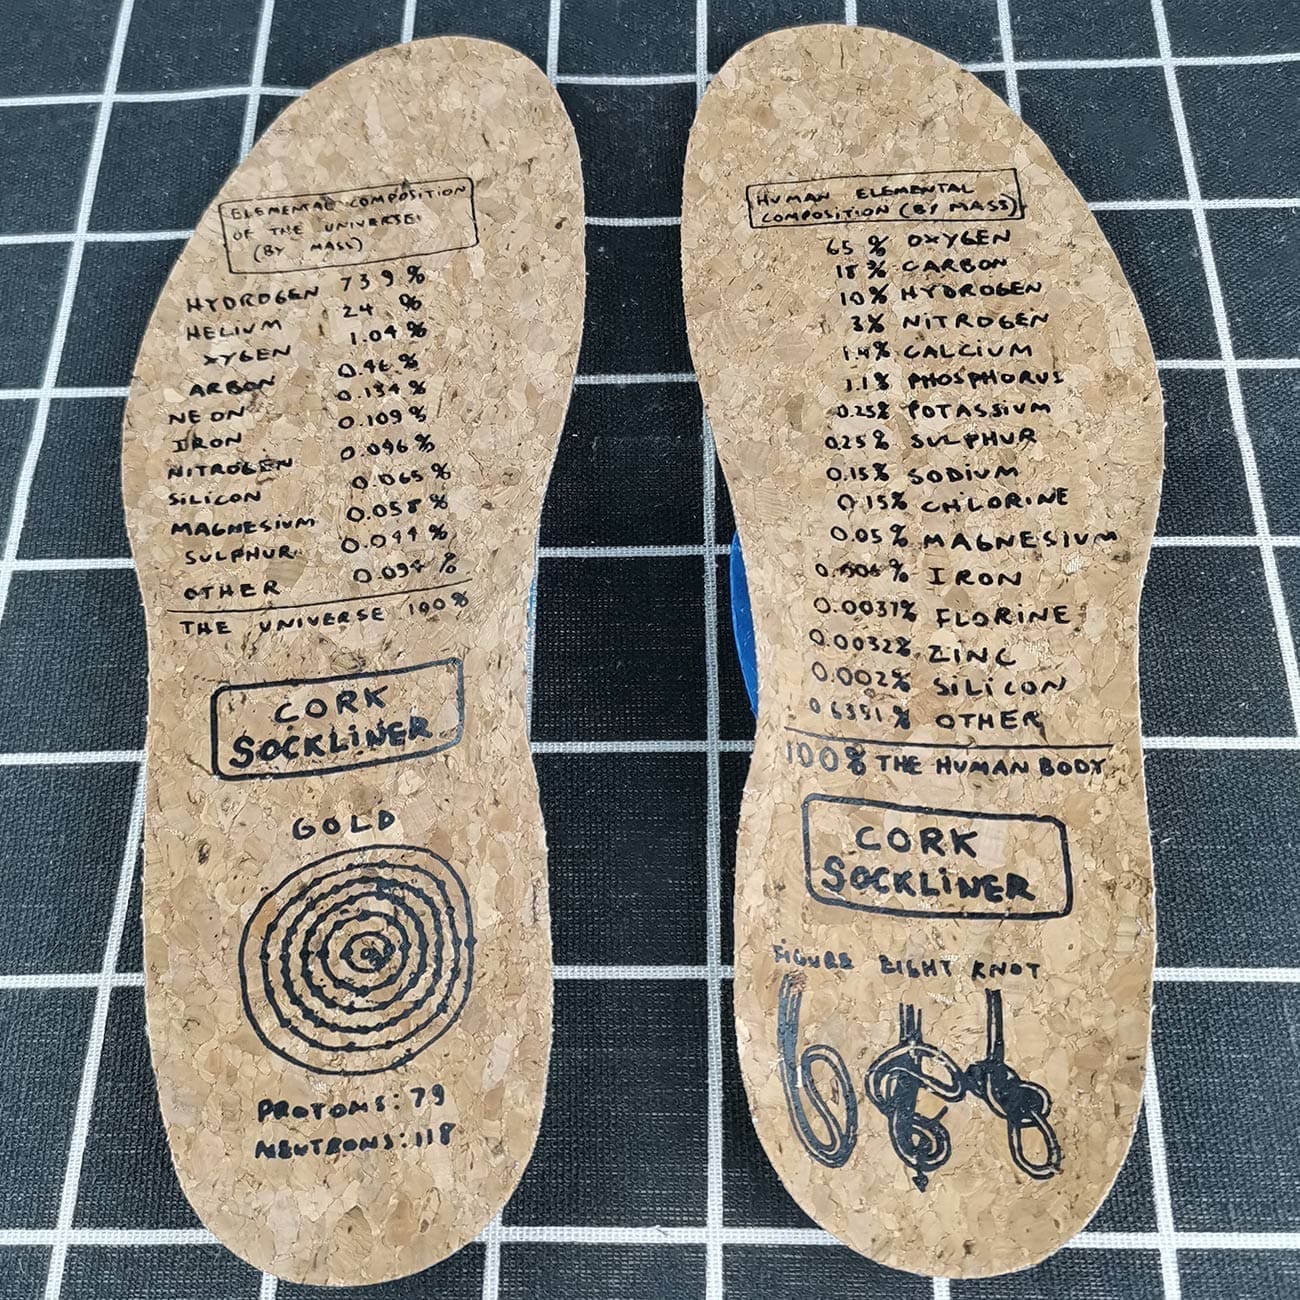 ELEMENTAL COMPOSITION
OF THE UNIVERSE:
(BY MASS)
HYDROGEN 73.9%
HELIUM 24 %
XYGEN 1.04%
ARBON 0.46%
NEON 0.134%
IRON 0.109%
NITROGEN 0.096%
SILICON 0.065%
MAGNESIUM 0.058%
SULPHUR 0.044%
OTHER 0.094%
THE UNIVERSE 100%
CORK
SOCKLINER
GOLD
PROTONS: 79
NEUTRONS: 118
HUMAN ELEMENTAL
COMPOSITION (BY MASS)
65 % OXYGEN
18% CARBON
10% HYDROGEN
3% NITROGEN
1.4% CALCIUM
1.1% PHOSPHORUS
0.25% POTASSIUM
0.25% SULPHUR
0.15% SODIUM
0.15% CHLORINE
0.05% MAGNESIUM
0.006% IRON
0.0037% FLORINE
0.0032% ZINC
0.002% SILICON
0.6351% OTHER
100% THE HUMAN BODY
CORK
SOCKLINER
FIGURE EIGHT KNOT